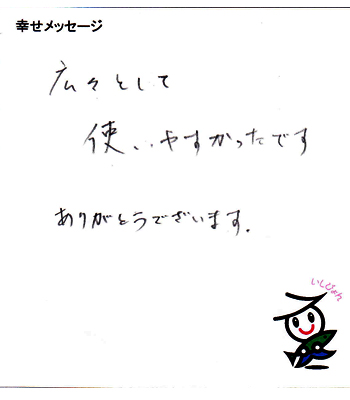 幸せメッセージ
広々として
使いやすかったです
ありがとうでざいます.
いしぴょん